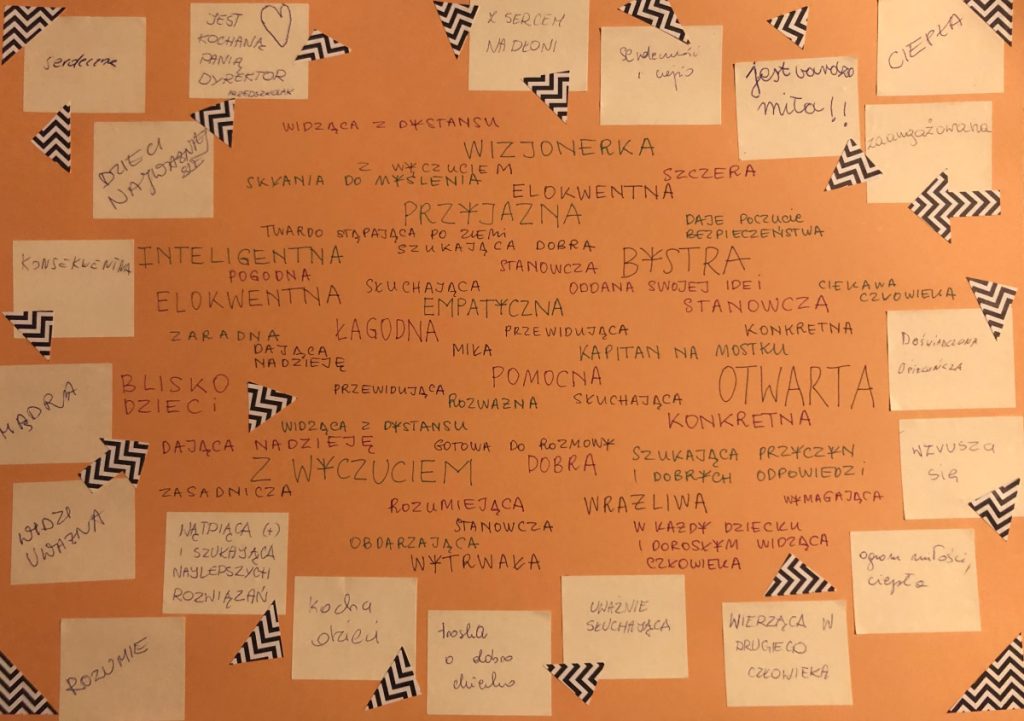 serdeczna
JEST
KOCHANĄ
PANIĄ
DYREKTOR
PRZEDSZKOLAK
Z SERCEM
NA DŁONI
serdeczność
i ciepło
jest bardzo
miła!!
CIEPŁA
DZIECI
NAJWAŻNIEJ
SZE
zaangażowana
WIDZĄCA Z DYSTANSU
WIZJONERKA
Z WYCZUCIEM
SZCZERA
SKŁANIA DO MYŚLENIA
ELOKWENTNA
PRZYJAZNA
DAJE POCZUCIE
BEZPIECZEŃSTWA
TWARDO STĄPAJĄCA PO ZIEMI
SZUKAJĄCA DOBRA
KONSEKWENTNA
INTELIGENTNA
STANOWCZA
BYSTRA
POGODNA
SŁUCHAJĄCA
ODDANA SWOJEJ IDEI
CIEKAWA
CZŁOWIEKA
ELOKWENTNA
EMPATYCZNA
STANOWCZA
ZARADNA
ŁAGODNA
PRZEWIDUJĄCA
KONKRETNA
DAJĄCA
NADZIEJĘ
MIŁA
KAPITAN NA MOSTKU
DOŚWIADCZONA
OPIEKUŃCZA
MĄDRA
BLISKO
DZIECI
PRZEWIDUJĄCA
POMOCNA
OTWARTA
ROZWAŻNA
SŁUCHAJĄCA
KONKRETNA
WIDZĄCA Z DYSTANSU
DAJĄCA NADZIEJĘ
GOTOWA DO ROZMOWY
SZUKAJĄCA PRZYCZYN
I DOBRYCH ODPOWIEDZI
WZRUSZA
SIĘ
Z WYCZUCIEM
DOBRA
ZASADNICZA
ROZUMIEJĄCA
WRAŻLIWA
WYMAGAJĄCA
WIDZI
UWAŻNA
STANOWCZA
W KAŻDY DZIECKU
I DOROSŁYM WIDZĄCA
CZŁOWIEKA
OBDARZAJĄCA
WYTRWAŁA
WĄTPIĄCA (+)
I SZUKAJĄCA
NAJLEPSZYCH
ROZWIĄZAŃ
ogrom miłości,
ciepła
kocha
dzieci
troska
o dobro
dziecka
UWAŻNIE
SŁUCHAJĄCA
WIERZĄCA W
DRUGIEGO
CZŁOWIEKA
ROZUMIE